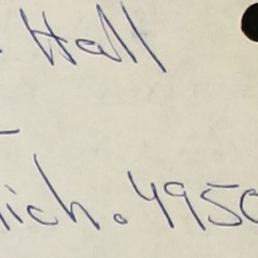 Hall
ich. 4950